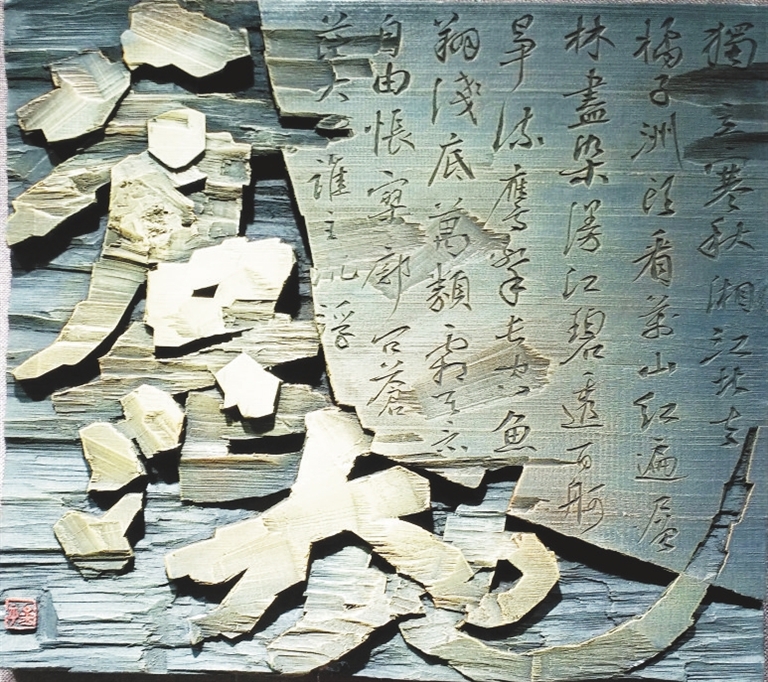 獨立寒秋湘江北去
橘子洲頭看萬山紅遍層
林盡染漫江碧透百舸
爭流鷹擊長空魚
翔淺底萬類霜天競
自由悵寥廓問蒼
茫大地誰主沉浮